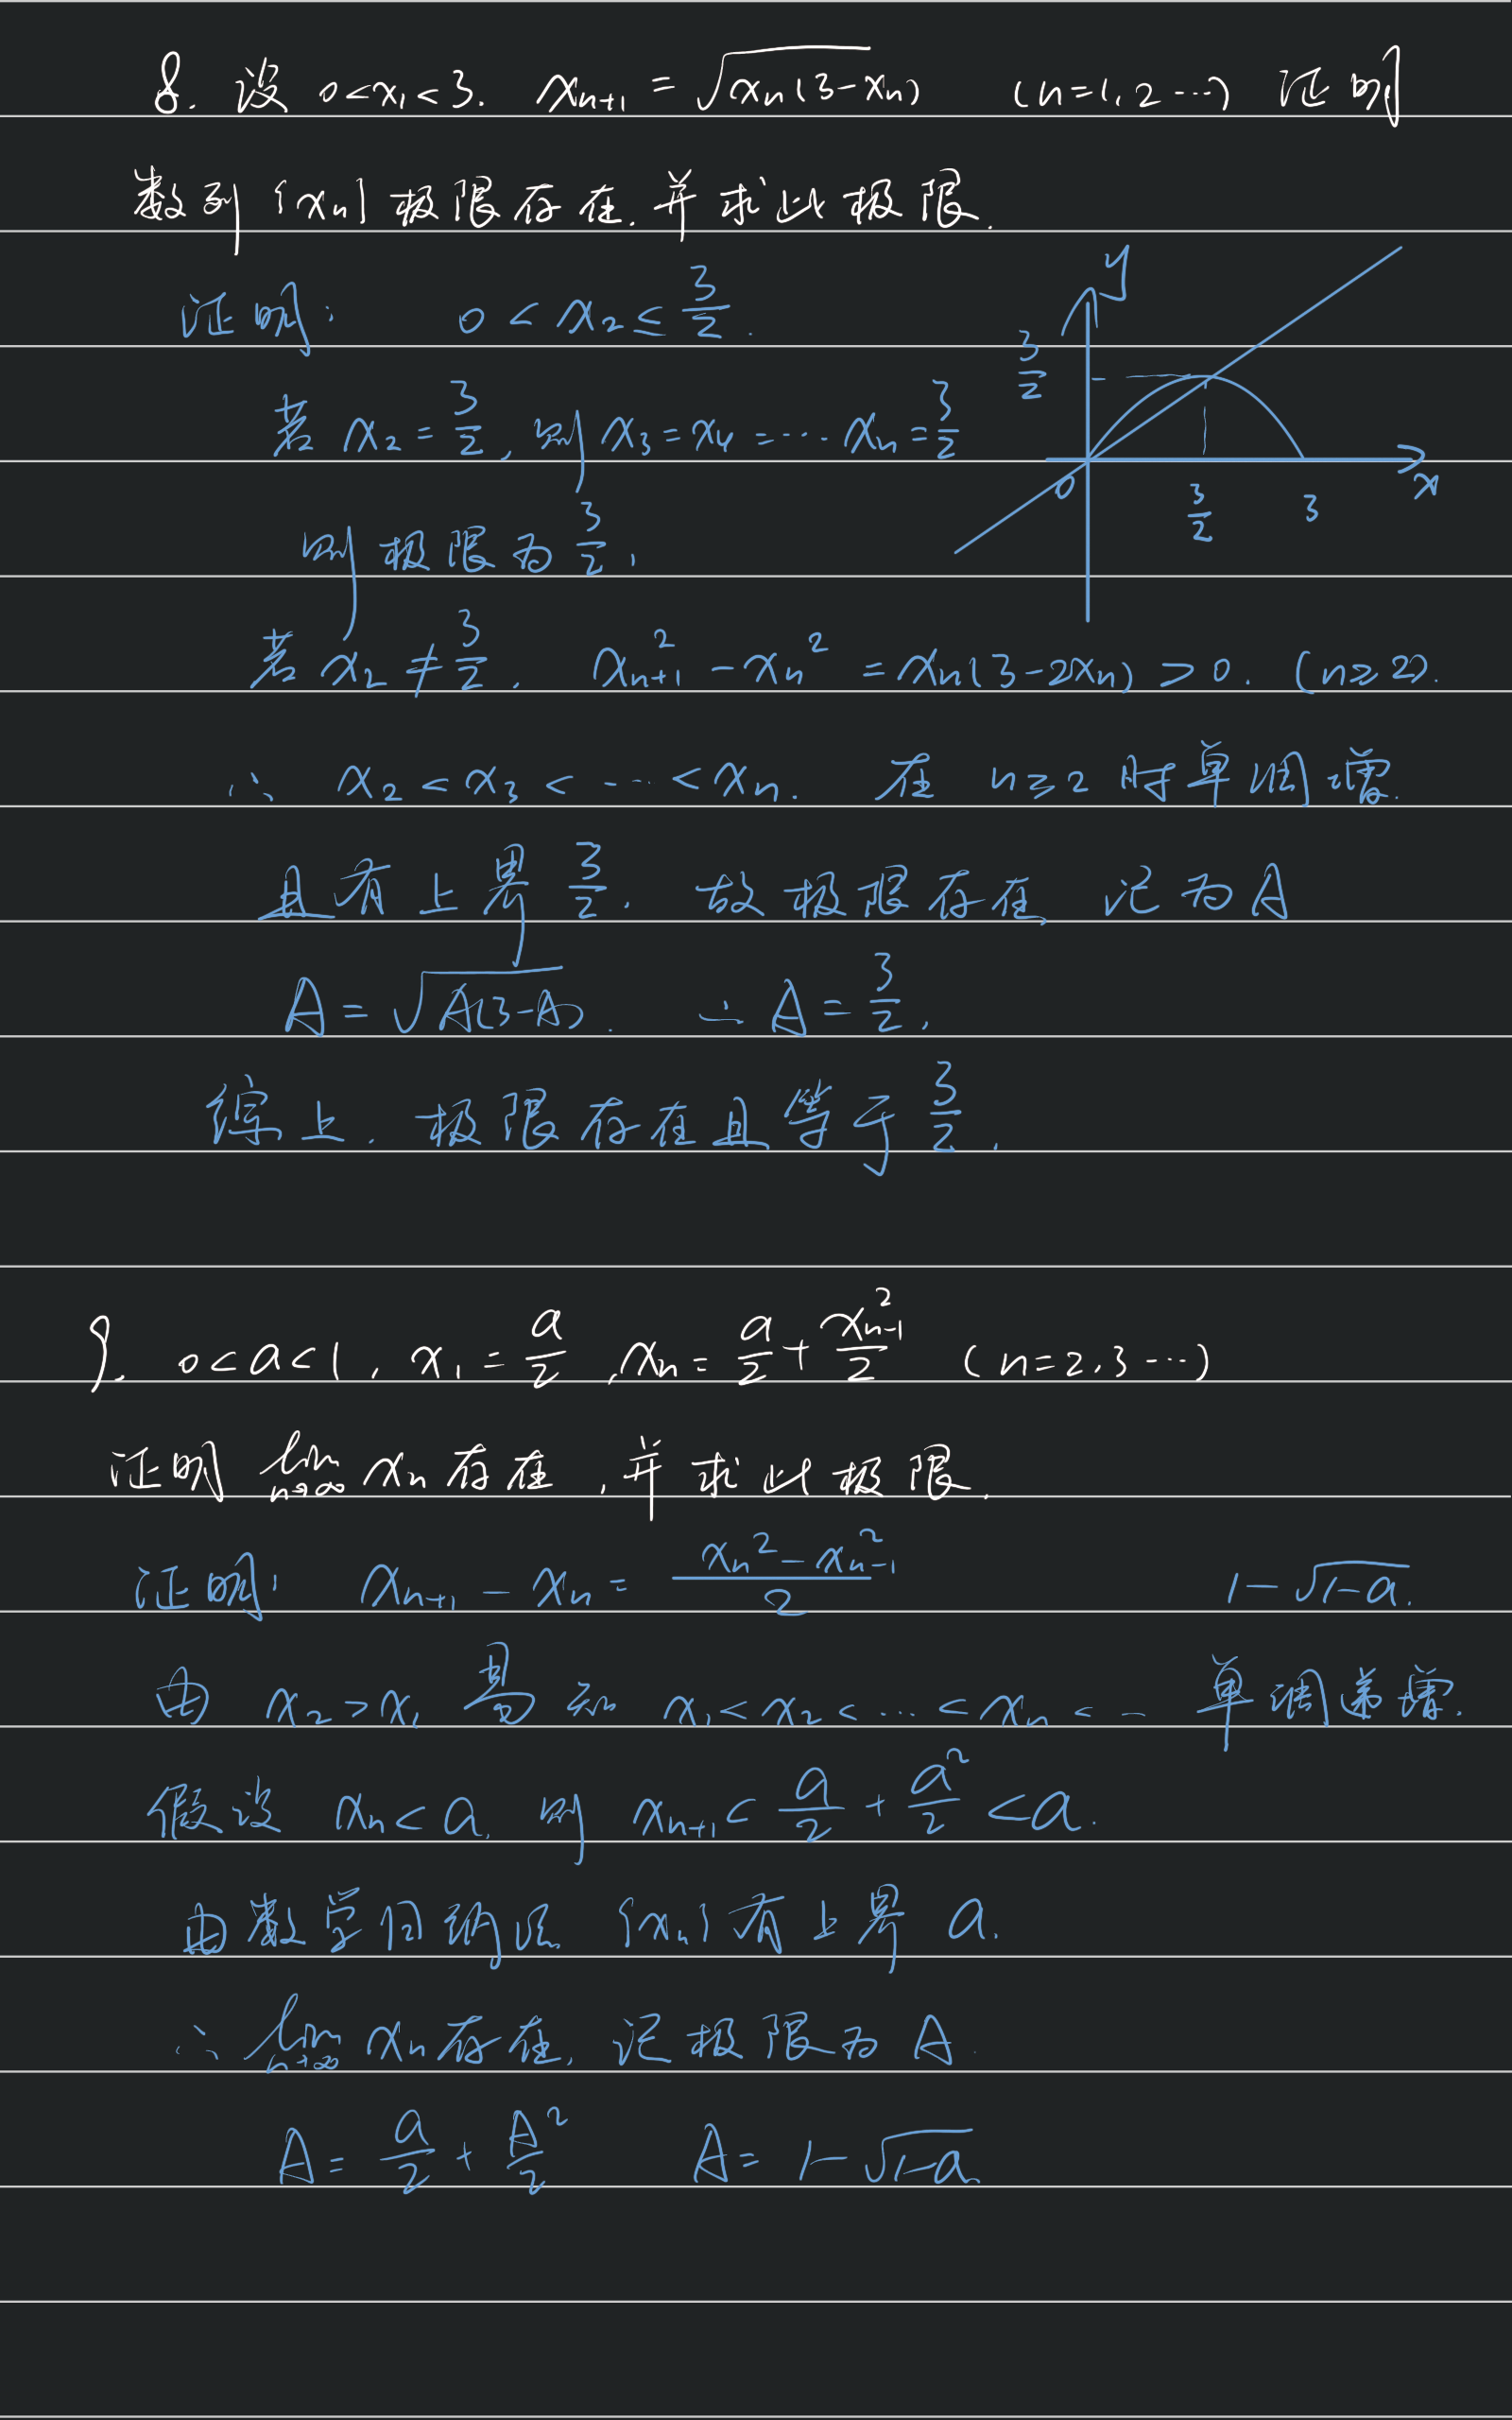 8. 设 0<x₁<3. xₙ₊₁ = √(xₙ(3-xₙ)) (n=1,2…) 证明
数列{xₙ}极限存在.并求此极限.
证明: 0 < x₂ ≤ 3/2.
y
3/2
若 x₂ = 3/2, 则 x₃ = x₄ = … xₙ = 3/2
0 3/2 3 x
则极限为 3/2.
若 x₂ ≠ 3/2. xₙ₊₁² - xₙ² = xₙ(3-2xₙ) > 0. (n≥2).
∴ x₂ < x₃ < … < xₙ. 在 n≥2 时单调增.
且有上界 3/2. 故极限存在 记为A
A = √(A(3-A)). ∴ A = 3/2.
综上. 极限存在且等于 3/2.
9. 0<a<1, x₁ = a/2, xₙ = a/2 + xₙ₋₁²/2 (n=2,3…)
证明 lim n→∞ xₙ 存在,并求此极限.
证明: xₙ₊₁ - xₙ = (xₙ² - xₙ₋₁²)/2 1-√(1-a).
由 x₂ > x₁ 易知 x₁ < x₂ < … < xₙ < … 单调递增.
假设 xₙ < a. 则 xₙ₊₁ < a/2 + a²/2 < a.
由数学归纳法 {xₙ} 有上界 a.
∴ lim n→∞ xₙ 存在, 记极限为 A.
A = a/2 + A²/2 A = 1-√(1-a)